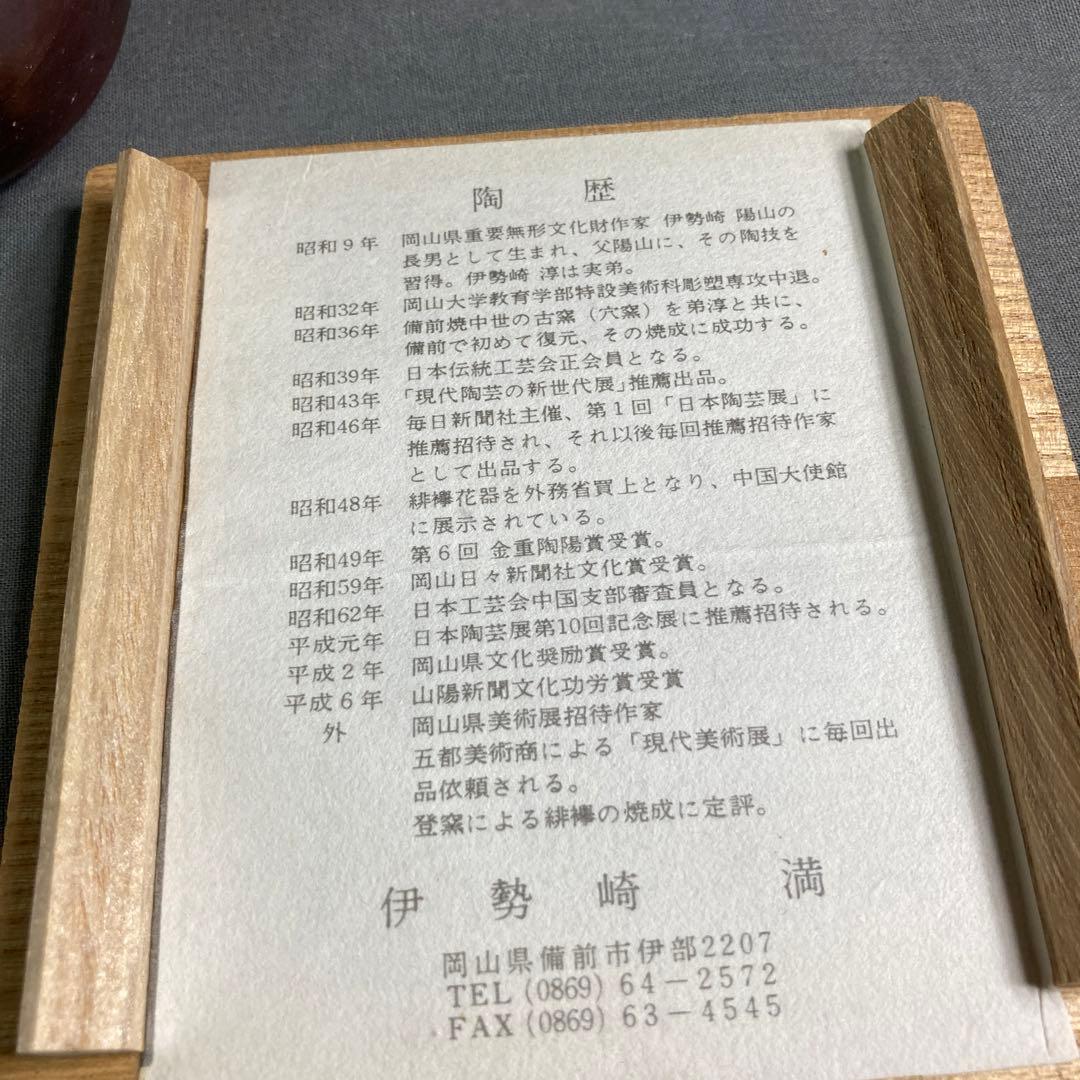 陶 歴
昭和9年 岡山県重要無形文化財作家 伊勢崎 陽山の
長男として生まれ、父陽山に、その陶技を
習得。伊勢崎 淳は実弟。
昭和32年 岡山大学教育学部特設美術科彫塑専攻中退。
昭和36年 備前焼中世の古窯（穴窯）を弟淳と共に、
備前で初めて復元、その焼成に成功する。
昭和39年 日本伝統工芸会正会員となる。
昭和43年 「現代陶芸の新世代展」推薦出品。
昭和46年 毎日新聞社主催、第1回「日本陶芸展」に
推薦招待され、それ以後毎回推薦招待作家
として出品する。
昭和48年 緋襷花器を外務省買上となり、中国大使館
に展示されている。
昭和49年 第6回 金重陶陽賞受賞。
昭和59年 岡山日々新聞社文化賞受賞。
昭和62年 日本工芸会中国支部審査員となる。
平成元年 日本陶芸展第10回記念展に推薦招待される。
平成2年 岡山県文化奨励賞受賞。
平成6年 山陽新聞文化功労賞受賞
外 岡山県美術展招待作家
五都美術商による「現代美術展」に毎回出
品依頼される。
登窯による緋襷の焼成に定評。
伊勢崎 満
岡山県備前市伊部2207
TEL (0869) 64－2572
FAX (0869) 63－4545